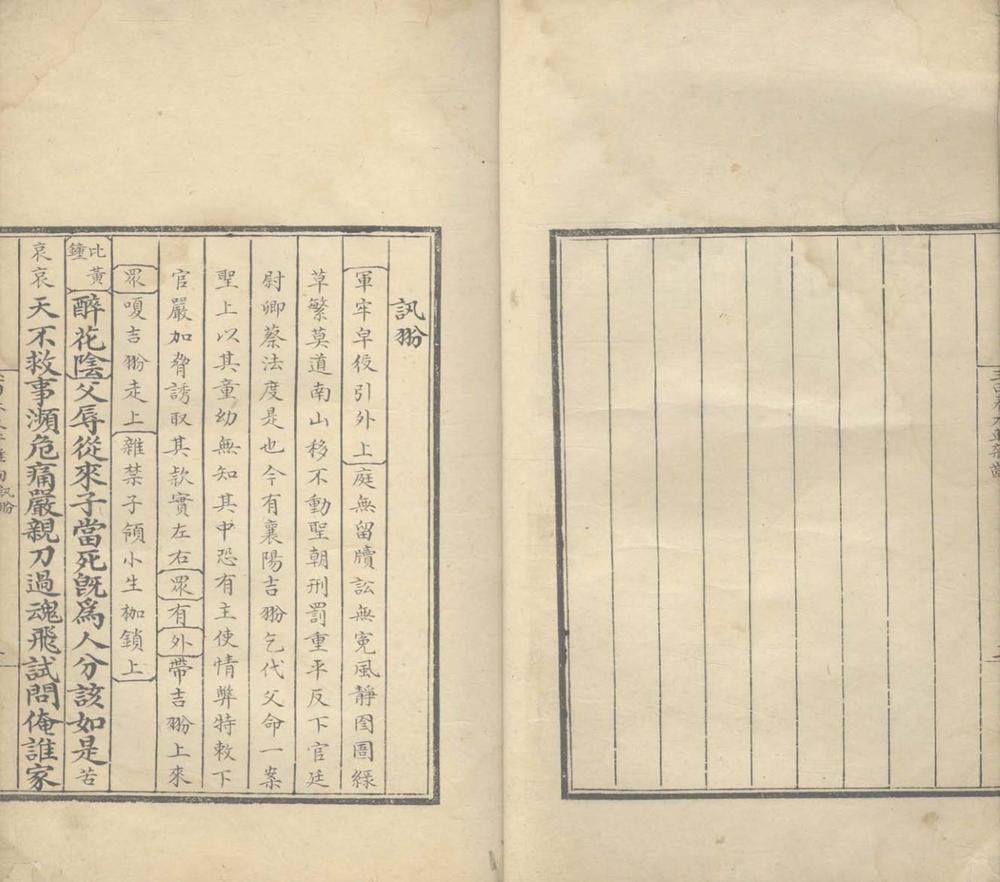 訊翂
軍牢皁役引外上庭無留牘訟無寃風靜囹圄綠
草繁莫道南山移不動聖朝刑罰重平反下官廷
尉卿蔡法度是也今有襄陽吉翂乞代父命一案
聖上以其童幼無知其中恐有主使情弊特敕下
官嚴加脅誘取其款實左右眾有外帶吉翂上來
眾嗄吉翂走上雜禁子領小生枷鎖上
北黃鐘醉花陰父辱從來子當死旣爲人分該如是苦
哀哀天不救事瀕危痛嚴親刀過魂飛試問俺誰家